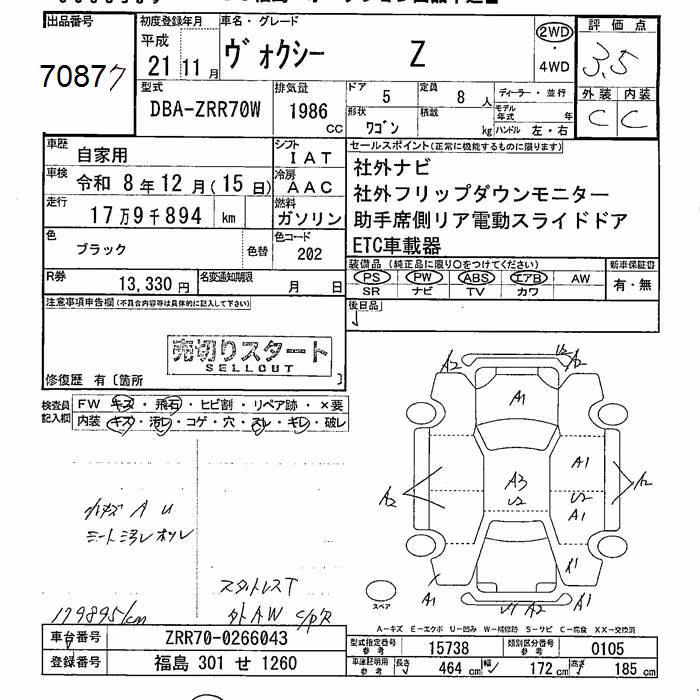 出品番号
70877
初度登録年月
平成
21 11 月
車名・グレード
ヴォクシー Z
2WD
・
4WD
評価点
3.5
外装 内装
C C
型式
DBA-ZRR70W
排気量
1986
CC
ドア 5
定員 8 人
形状
ワゴン
積載
kg
ディーラー・並行
モデル
年式 年
ハンドル 左・右
車歴
自家用
シフト
IAT
車検
令和 8年12月(15日)
冷房
AAC
走行
17万9千894 km
燃料
ガソリン
色
ブラック
色替
色コード
202
R券
13,330円
名変通知期限
月 日
セールスポイント(正常に機能するものに限ります)
社外ナビ
社外フリップダウンモニター
助手席側リア電動スライドドア
ETC車載器
装備品(純正品に限り〇をつけてください)
PS PW ABS エアB AW
SR ナビ TV カワ
新車保証書
有・無
後日品
注意事項申告欄(不具合内容等は具体的に記入して下さい)
売切りスタート
SELLOUT
修復歴 有〔箇所 〕
検査員
記入欄
FW キズ・飛石・ヒビ割・リペア跡・×要
内装 キズ・汚レ・コゲ・穴・スレ・キレ・破レ
小キズ A U
179895km
スタットレスT
外AW
A2
U2
A2
A1
A1
A3
U2
U2
A1
A2
A2
A1
U1 A2
A1
スペア
A－キズ E－エクボ U－凹み W－補修跡 S－サビ C－腐食 XX－交換済
車台番号
ZRR70-0266043
登録番号
福島 301 せ 1260
型式指定番号
参考
15738
類別区分番号
参考
0105
車庫証明用
参考
長さ
464 cm
幅
172 cm
高さ
185 cm